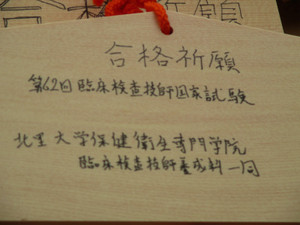 合格祈願
第62回臨床検査技師国家試験
北里大学保健衛生専門学院
臨床検査技師養成科一同